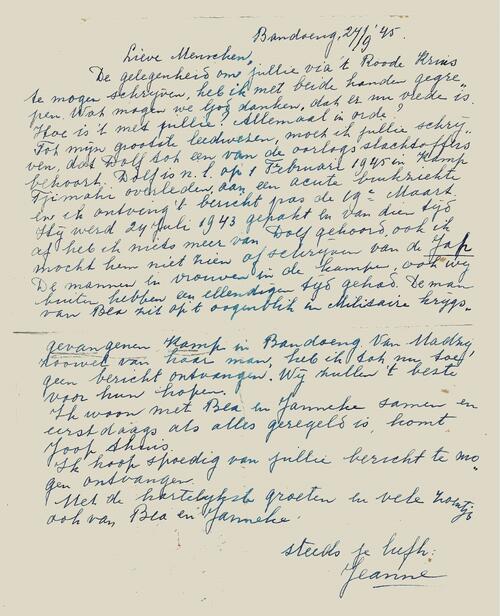 Bandoeng, 24/9 '45.
Lieve Menschen,
De gelegenheid om jullie via 't Roode Kruis
te mogen schrijven, heb ik met beide handen gegre-
pen. Wat mogen we God danken, dat er nu vrede is.
Hoe is 't met jullie? Allemaal in orde?
Tot mijn grootste leedwezen, moet ik jullie schrij-
ven, dat Dolf ook een van de oorlogsslachtoffers
behoort. Dolf is n.l. op 1 Februari 1945 in Kamp
Tjimahi overleden, aan een acute buikziekte
en ik ontving 't bericht pas de 19e Maart.
Hij werd 24 Juli 1943 gepakt en van dien tijd
af heb ik niets meer van Dolf gehoord, ook ik
mocht hem niet zien of schrijven van de Jap
De mannen en vrouwen in de kampen, ook wij
buiten hebben een ellendigen tijd gehad. De man
van Bea zit op 't oogenblik in Militaire krijgs-
gevangenen Kamp in Bandoeng. Van
zoowel van haar man, heb ik tot nu toe
geen bericht ontvangen. Wij zullen 't beste
voor hun hopen.
Ik woon met Bea en Janneke samen en
eerstdaags als alles geregeld is, komt
Joop thuis.
Ik hoop spoedig van jullie bericht te mo-
gen ontvangen.
Met de hartelijkste groeten en vele
ook van Bea en Janneke.
steeds je liefh:
Jeanne